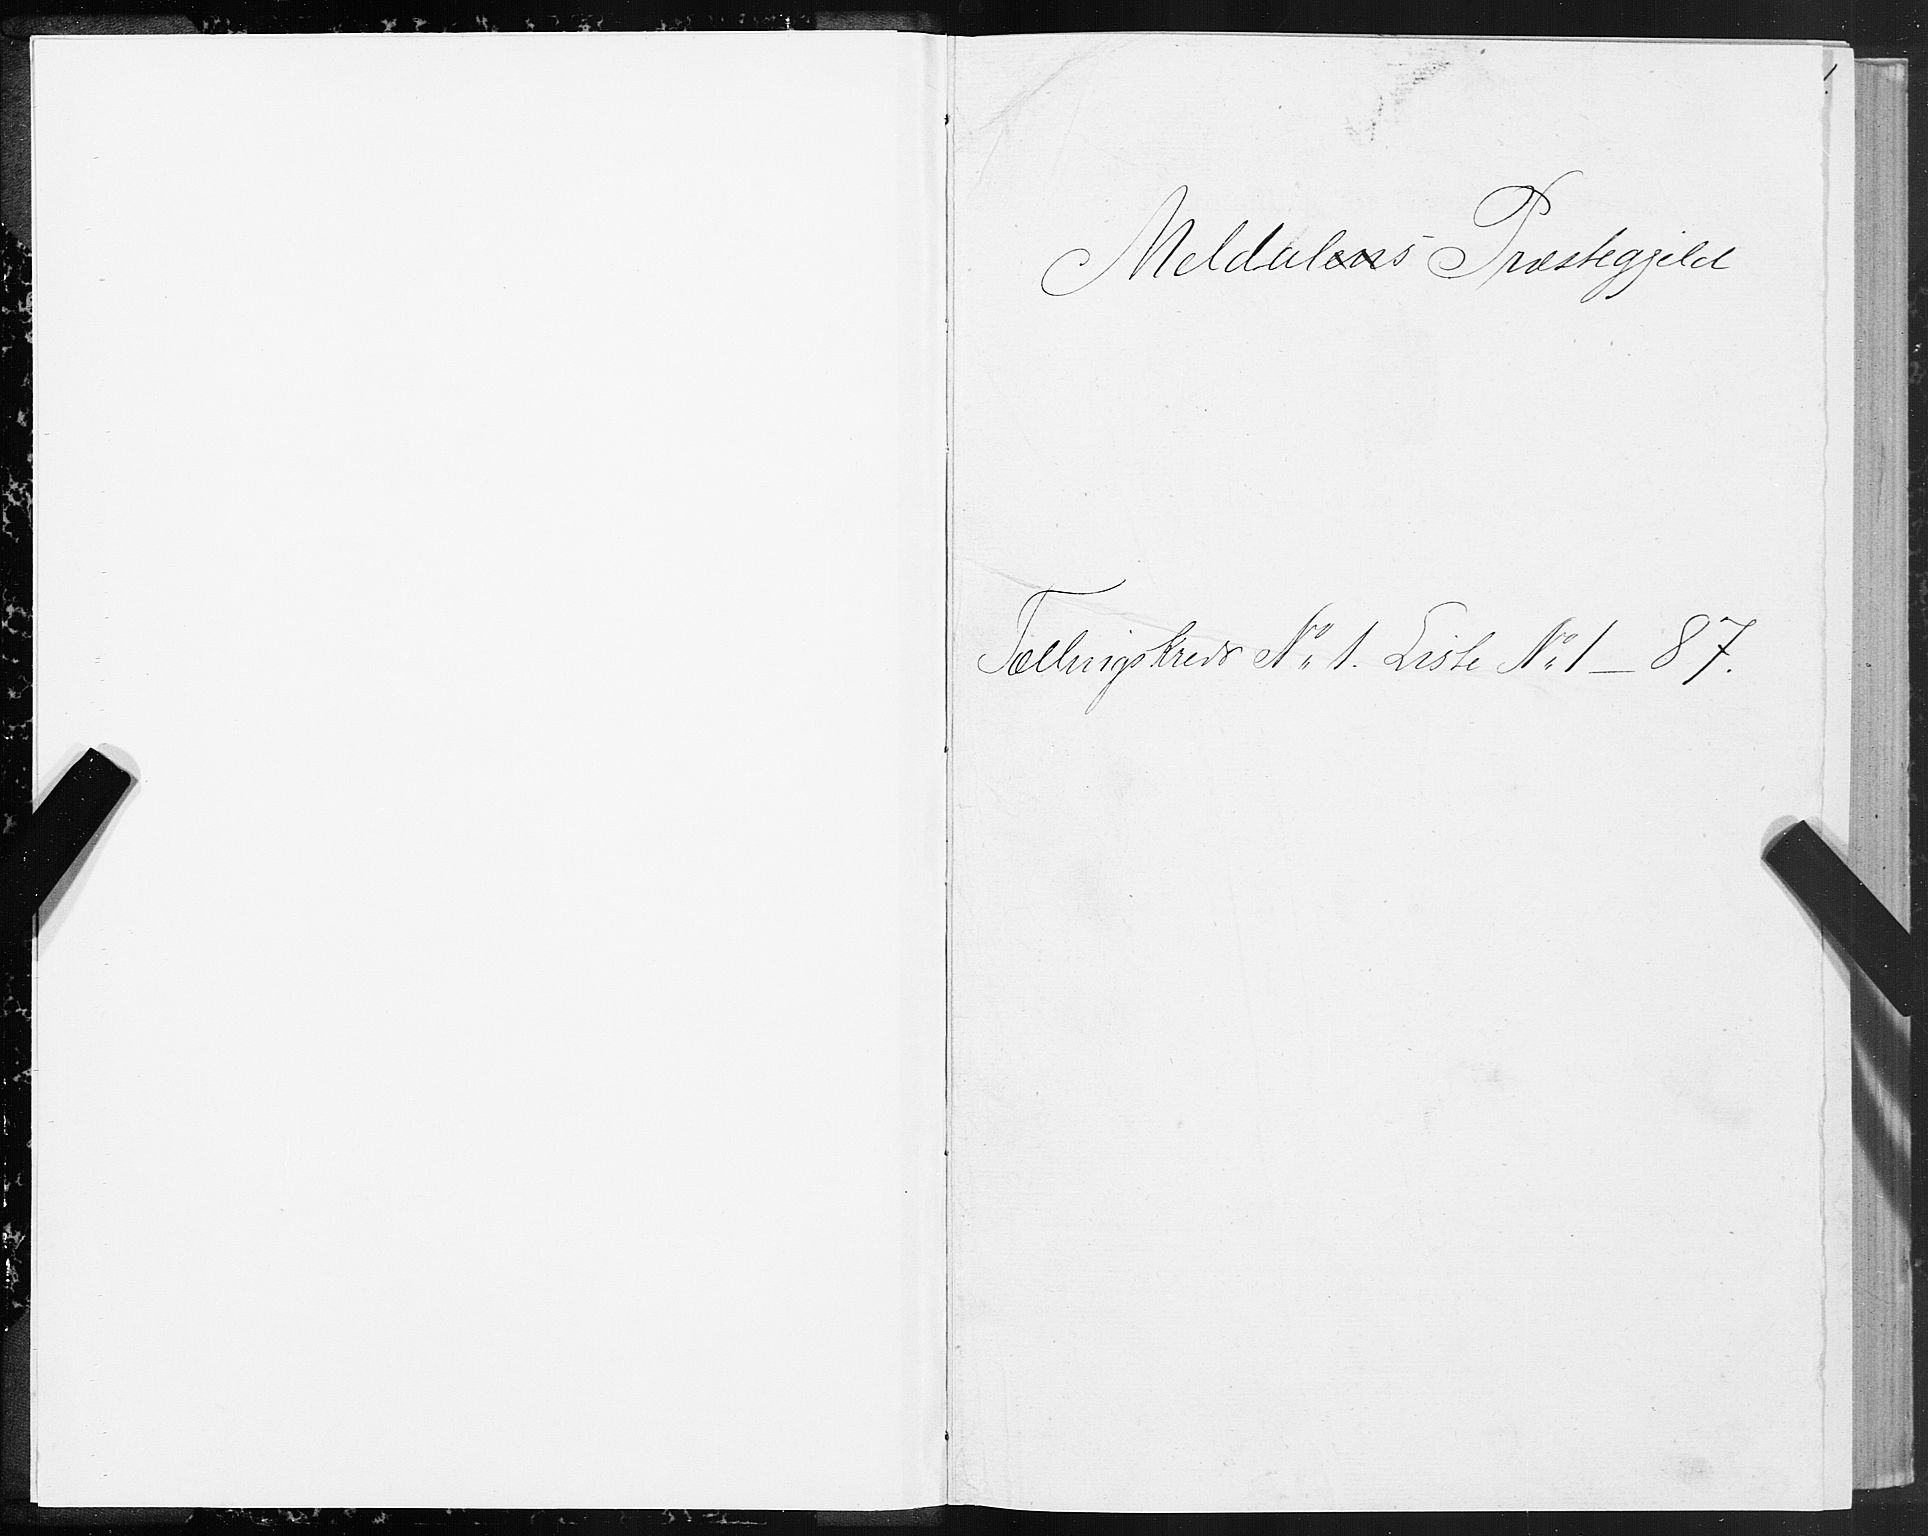 1
Meldalens Præstegjeld
Tællingskreds No 1. Liste No 1 — 87.